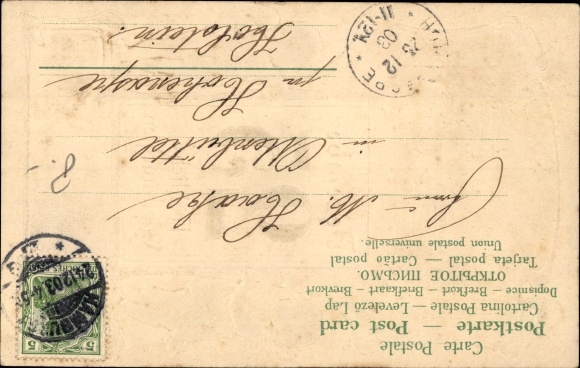 Carte Postale
Postkarte — Post card
Cartolina Postale — Levelező Lap
Dopisnice — Brefkort — Briefkaart — Brevkort
ОТКРЫТОЕ ПИСЬМО.
Tarjeta postal — Cartão postal
Union postale universelle.
5
HAMBURG
24.12.03
M. Haake
in Ottenbüttel
pr Hohenaspe
Holstein.
HOHENASPE
23 12
03
11-12V
8.-